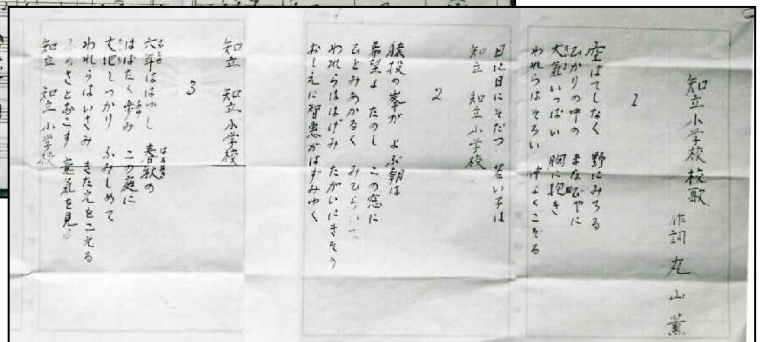 知立小学校校歌
作詞 丸山薫
1
空はてしなく 野にみちる
ひかりの中の まなびやに
大氣いっぱい 胸に抱き
われらはそろい 仲よくこぞる
日に日にそだつ 若い子は
知立 知立小学校
2
猿投の峯が よぶ朝は
希望よ たのし この窓に
ひとみあかるく みひらいて
われらははげみ たがいにきそう
おしえに智恵がはずみゆく
知立 知立小学校
3
六年ははやし 春秋の
はばたく歩み この庭に
大地しっかり ふみしめて
われらはいさみ きたえをこえる
さとおこす 意氣を見
知立 知立小学校